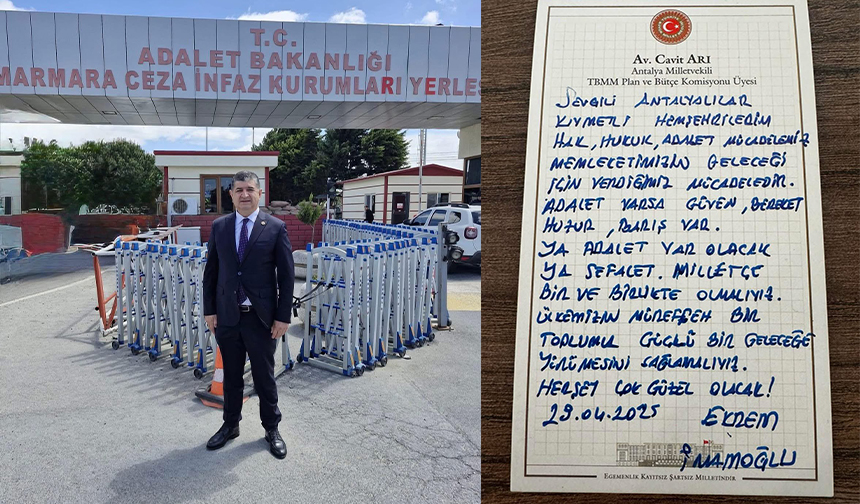 T.C.
ADALET BAKANLIĞI
MARMARA CEZA İNFAZ KURUMLARI YERLEŞ
Av. Cavit ARI
Antalya Milletvekili
TBMM Plan ve Bütçe Komisyonu Üyesi
SEVGİLİ ANTALYALILAR
KIYMETLİ HEMŞEHRİLERİM
HAK, HUKUK, ADALET MÜCADELEMİZ
MEMLEKETİMİZİN GELECEĞİ
İÇİN VERDİĞİMİZ MÜCADELEDİR.
ADALET VARSA GÜVEN, BEREKET
HUZUR, BARIŞ VAR.
YA ADALET VAR OLACAK
YA SEFALET. MİLLETÇE
BİR VE BİRLİKTE OLMALIYIZ.
ÜLKEMİZİN MÜREFFEH BİR
TOPLUMLA GÜÇLÜ BİR GELECEĞE
YÜRÜMESİNİ SAĞLAMALIYIZ.
HERŞEY ÇOK GÜZEL OLACAK!
29.04.2025 EKREM
İMAMOĞLU
EGEMENLİK KAYITSIZ ŞARTSIZ MİLLETİNDİR